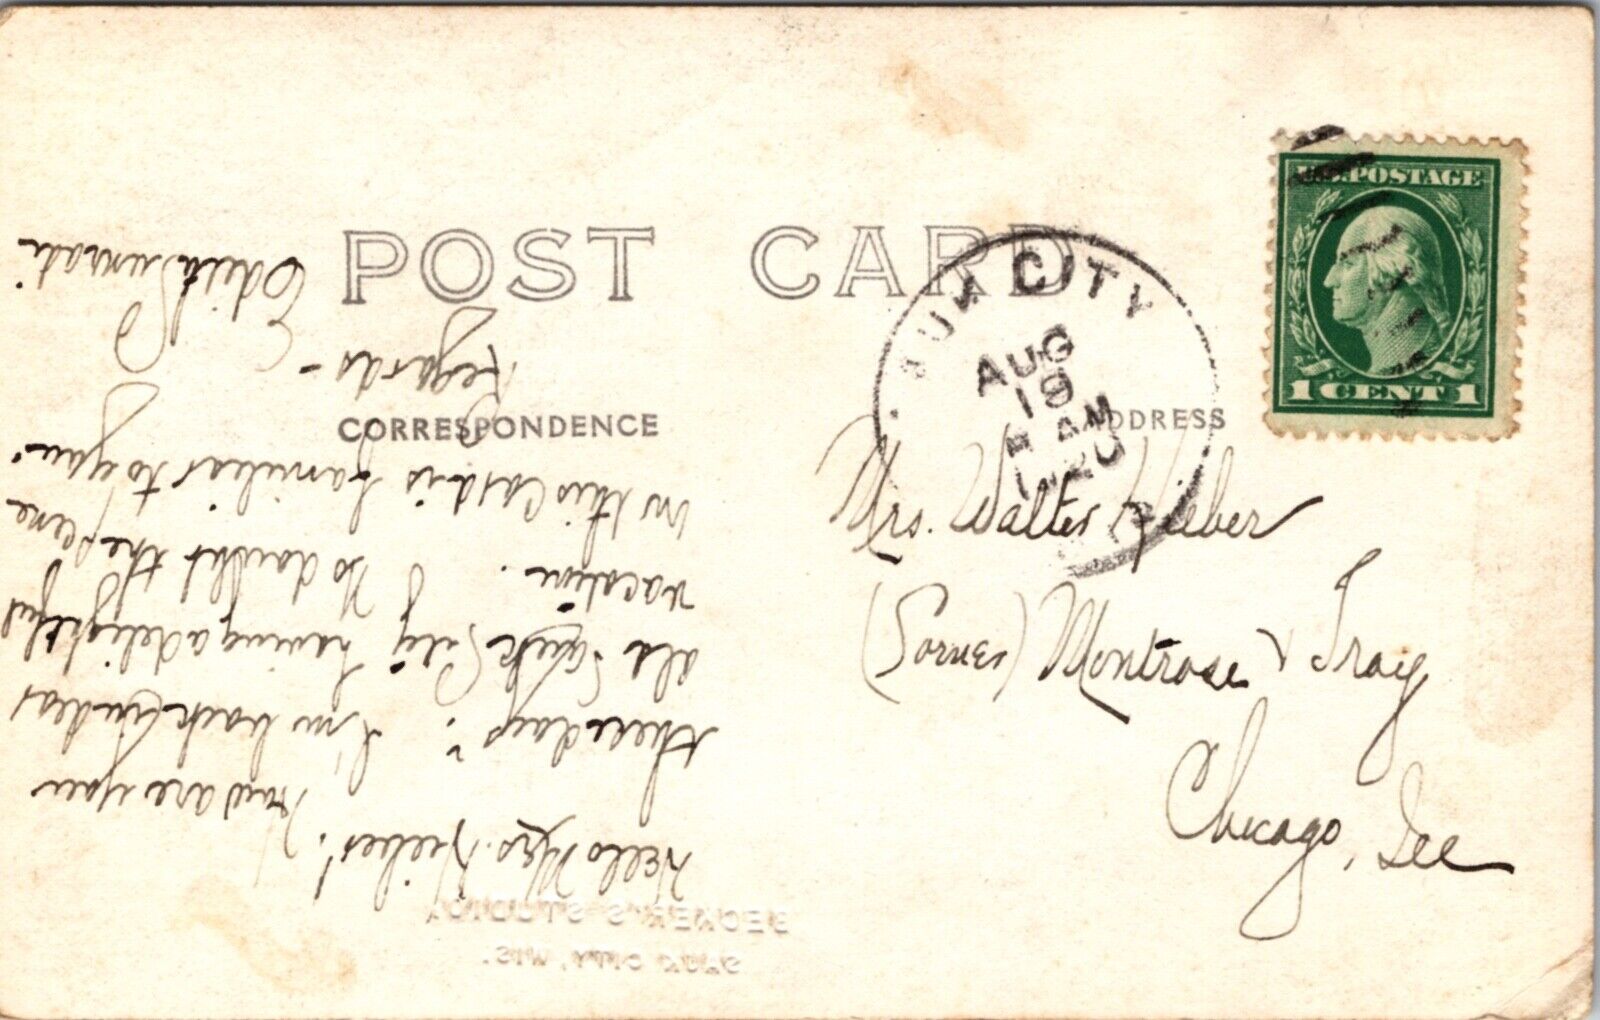 POST CARD
CORRESPONDENCE
ADDRESS
U.S. POSTAGE
1 CENT 1
AUK CITY
AUG
19
AM
1920
Mrs. Walter Hieber
(Corner) Montrose & Troy
Chicago, Ill
Hello Mrs. Hieber! How are you
these days? I'm back in dear
old Sauk City having a delightful
vacation. No doubt the scene
on this card is familiar to you.
Regards –
Edith
BECKER'S STUDIO
SAUK CITY, WIS.